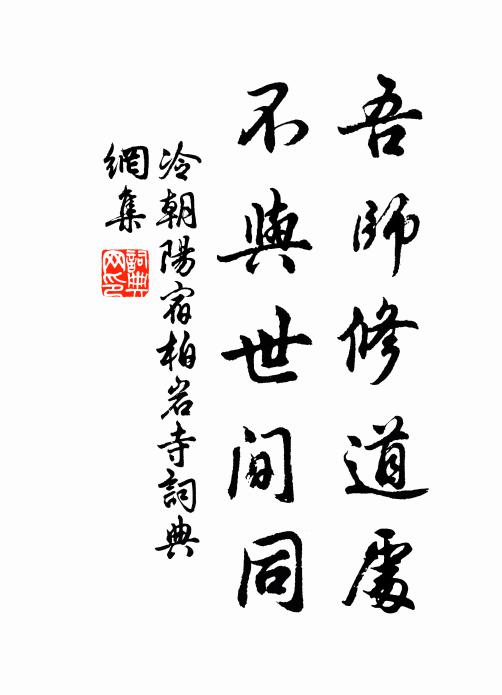 吾師修道處
不與世間同
冷朝陽宿柏岩寺詞典
網集
詞典
网印